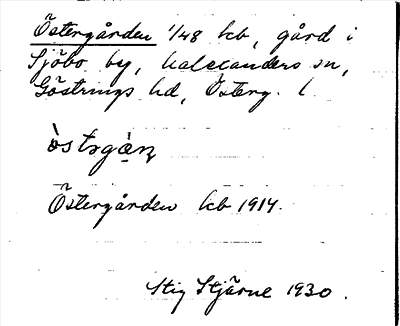 Östergården 1/48 kb, gård i
Sjöbo by, Malexanders sn,
Göstrings hd, Österg. l.
Östergården kb 1914.
Stig Stjärne 1930.